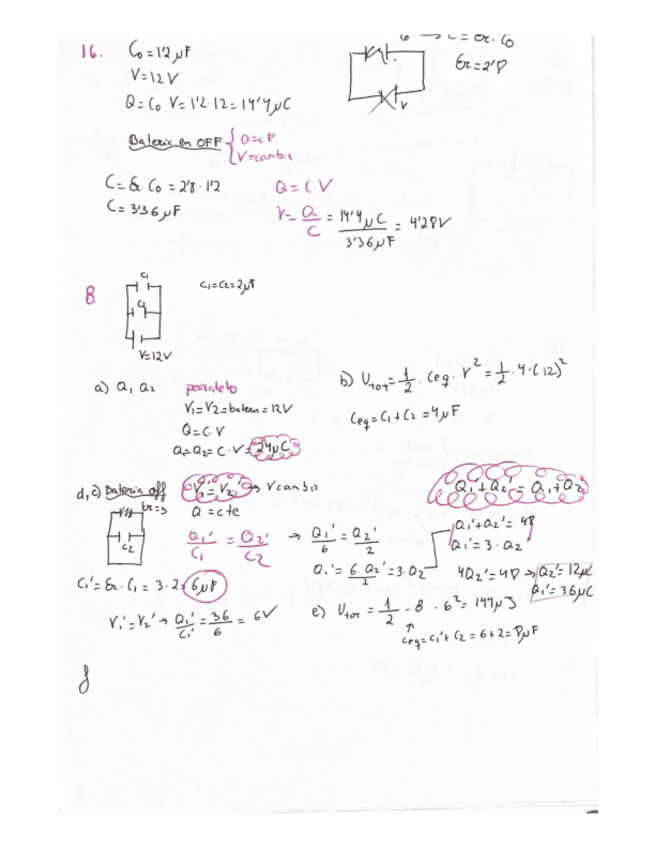 16. C₀ = 1'2 μF
C₀ → C = εr · C₀
εr = 2'8
V = 12 V
Q = C₀ · V = 1'2 · 12 = 14'4 μC
V
Batería en OFF { Q = cte
V = cambia
C = εr · C₀ = 2'8 · 1'2
Q = C · V
C = 3'36 μF
V = Q/C = 14'4 μC / 3'36 μF = 4'28 V
8 C₁
C₁ = C₂ = 2 μF
C₂
V = 12V
a) Q₁ Q₂ paralelo
V₁ = V₂ = batería = 12V
Q = C · V
Q₁ = Q₂ = C · V = 24 μC
b) Utot = 1/2 · Ceq · V² = 1/2 · 4 · (12)²
Ceq = C₁ + C₂ = 4 μF
d, c) Batería off V₁' = V₂' → V cambia
Q₁' + Q₂' = Q₁ + Q₂
εr = 3
Q = cte
C₂
Q₁'/C₁ = Q₂'/C₂ → Q₁'/6 = Q₂'/2
Q₁' + Q₂' = 48
Q₁' = 3 · Q₂
Q₁' = 6 · Q₂'/2 = 3 · Q₂
4Q₂' = 48 → Q₂' = 12 μC
Q₁' = 36 μC
C₁' = εr · C₁ = 3 · 2 = 6 μF
V₁' = V₂' → Q₁'/C₁' = 36/6 = 6V
e) Utot = 1/2 · 8 · 6² = 144 μJ
Ceq = C₁' + C₂ = 6 + 2 = 8 μF